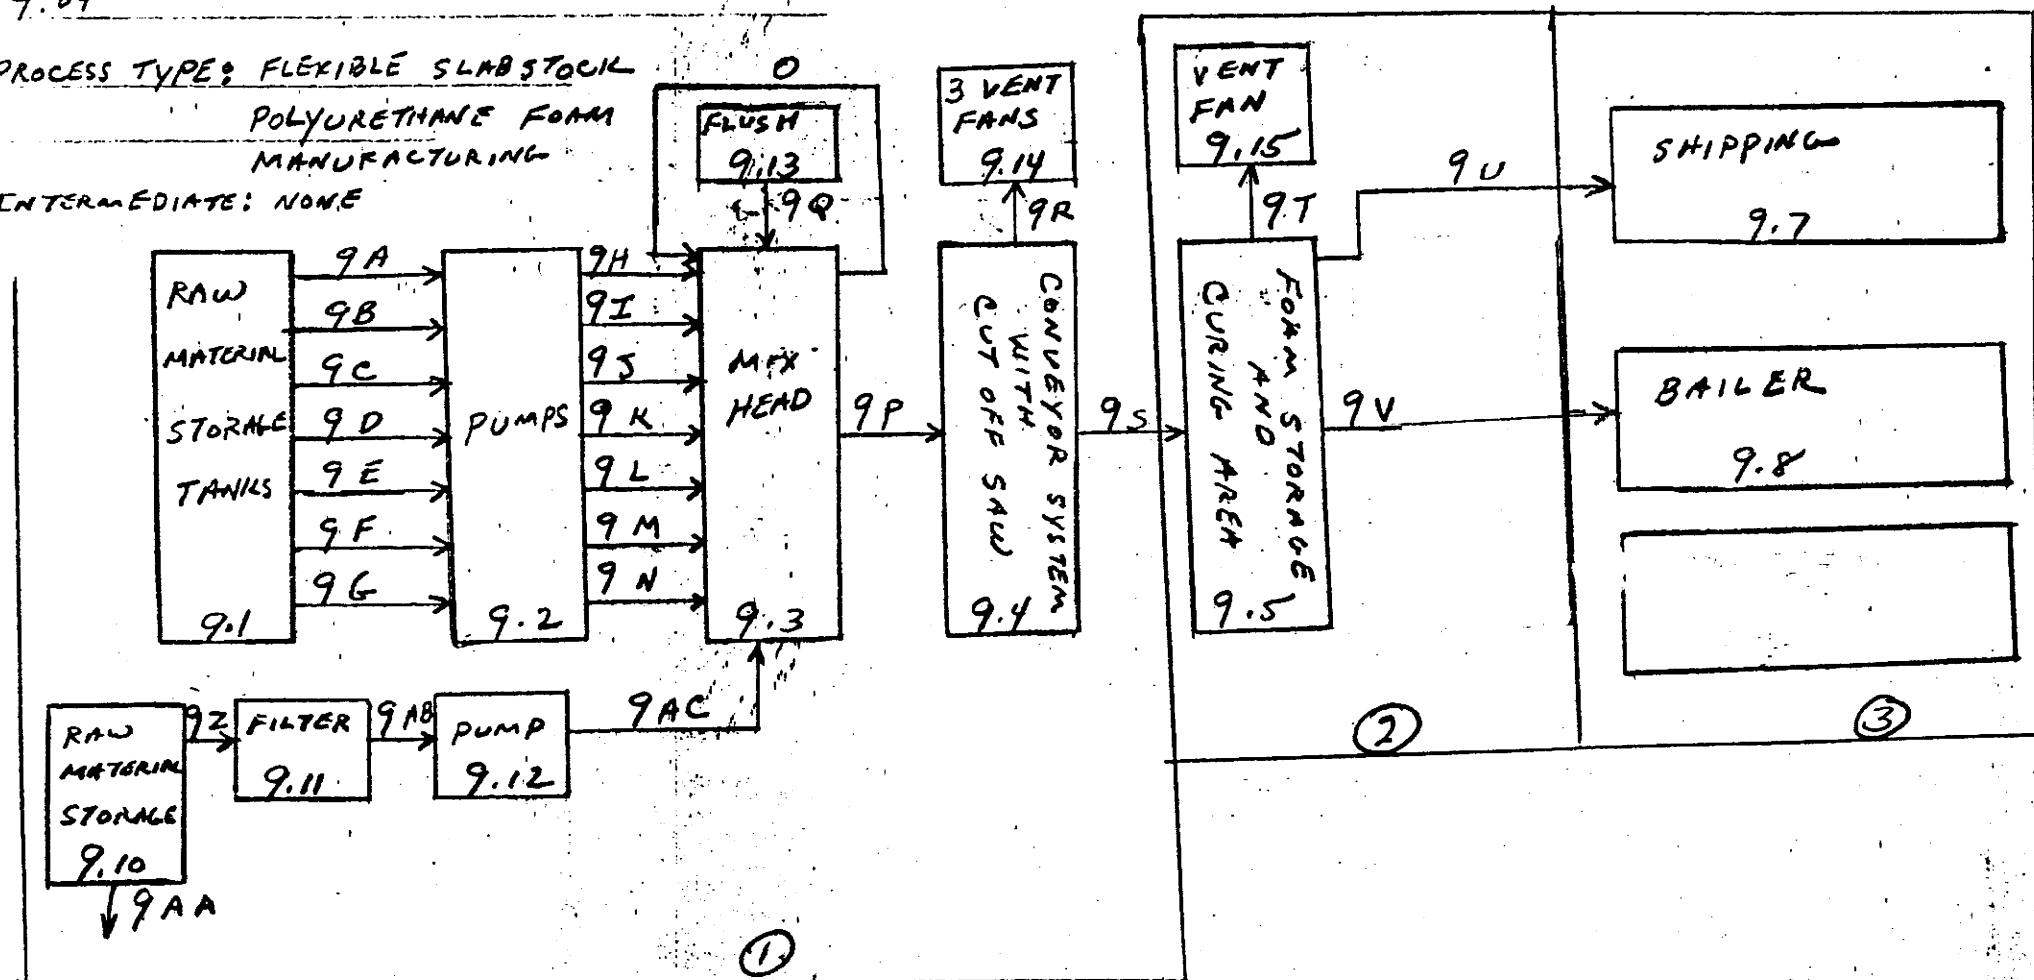 9.09
PROCESS TYPE: FLEXIBLE SLABSTOCK
POLYURETHANE FOAM
MANUFACTURING
INTERMEDIATE: NONE
O
FLUSH
9.13
9Q
3 VENT
FANS
9.14
9R
VENT
FAN
9.15
9T
9U
SHIPPING
9.7
RAW
MATERIAL
STORAGE
TANKS
9.1
9A
9B
9C
9D
9E
9F
9G
PUMPS
9.2
9H
9I
9J
9K
9L
9M
9N
MIX
HEAD
9.3
9P
CONVEYOR SYSTEM
WITH
CUT OFF SAW
9.4
9S
FOAM STORAGE
AND
CURING AREA
9.5
9V
BAILER
9.8
RAW
MATERIAL
STORAGE
9.10
9Z
FILTER
9.11
9AB
PUMP
9.12
9AC
9AA
1
2
3